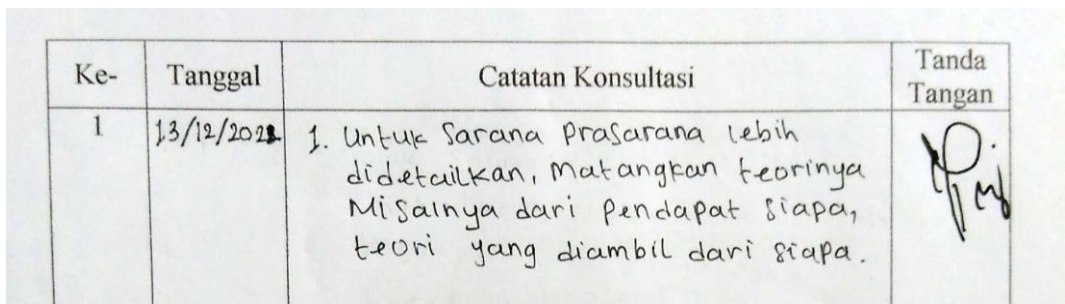 Ke- Tanggal Catatan Konsultasi Tanda Tangan
1 13/12/2022 1. Untuk Sarana Prasarana lebih
didetailkan, Matangkan teorinya
Misalnya dari Pendapat siapa,
teori yang diambil dari siapa.